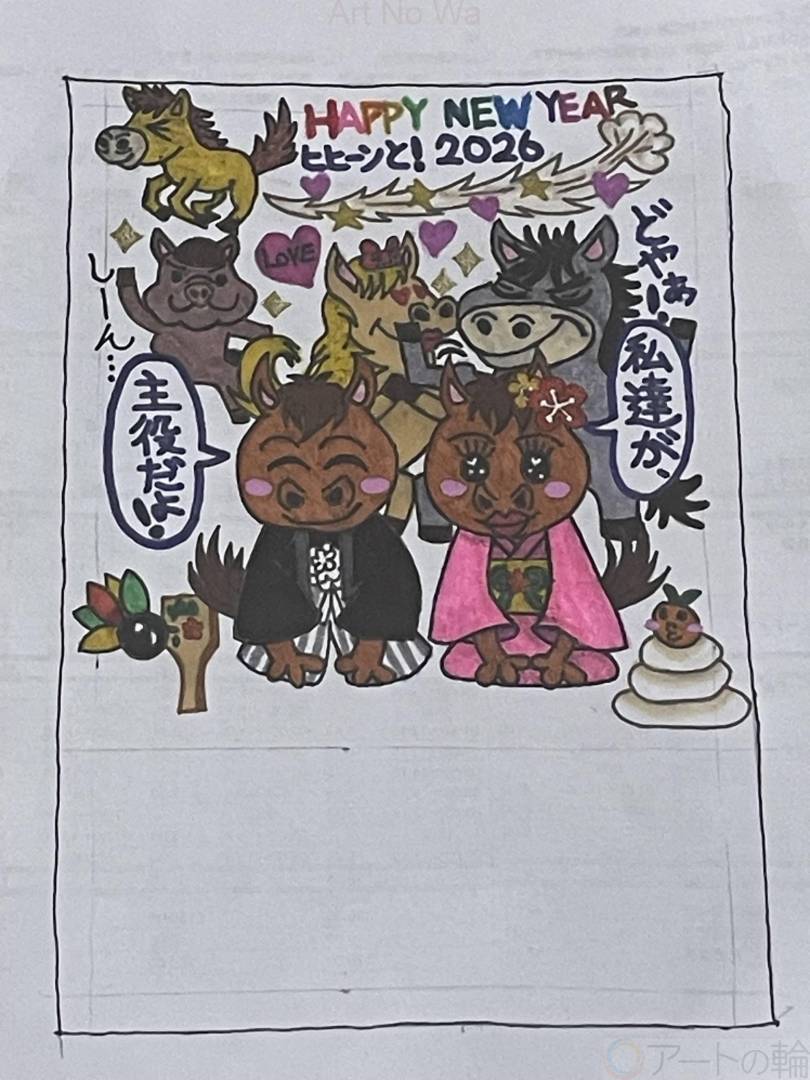 Art No Wa
HAPPY NEW YEAR
ヒヒーンと！2026
LOVE
どやぁー！
しーん…
私達が、
主役だよ！
アートの輪